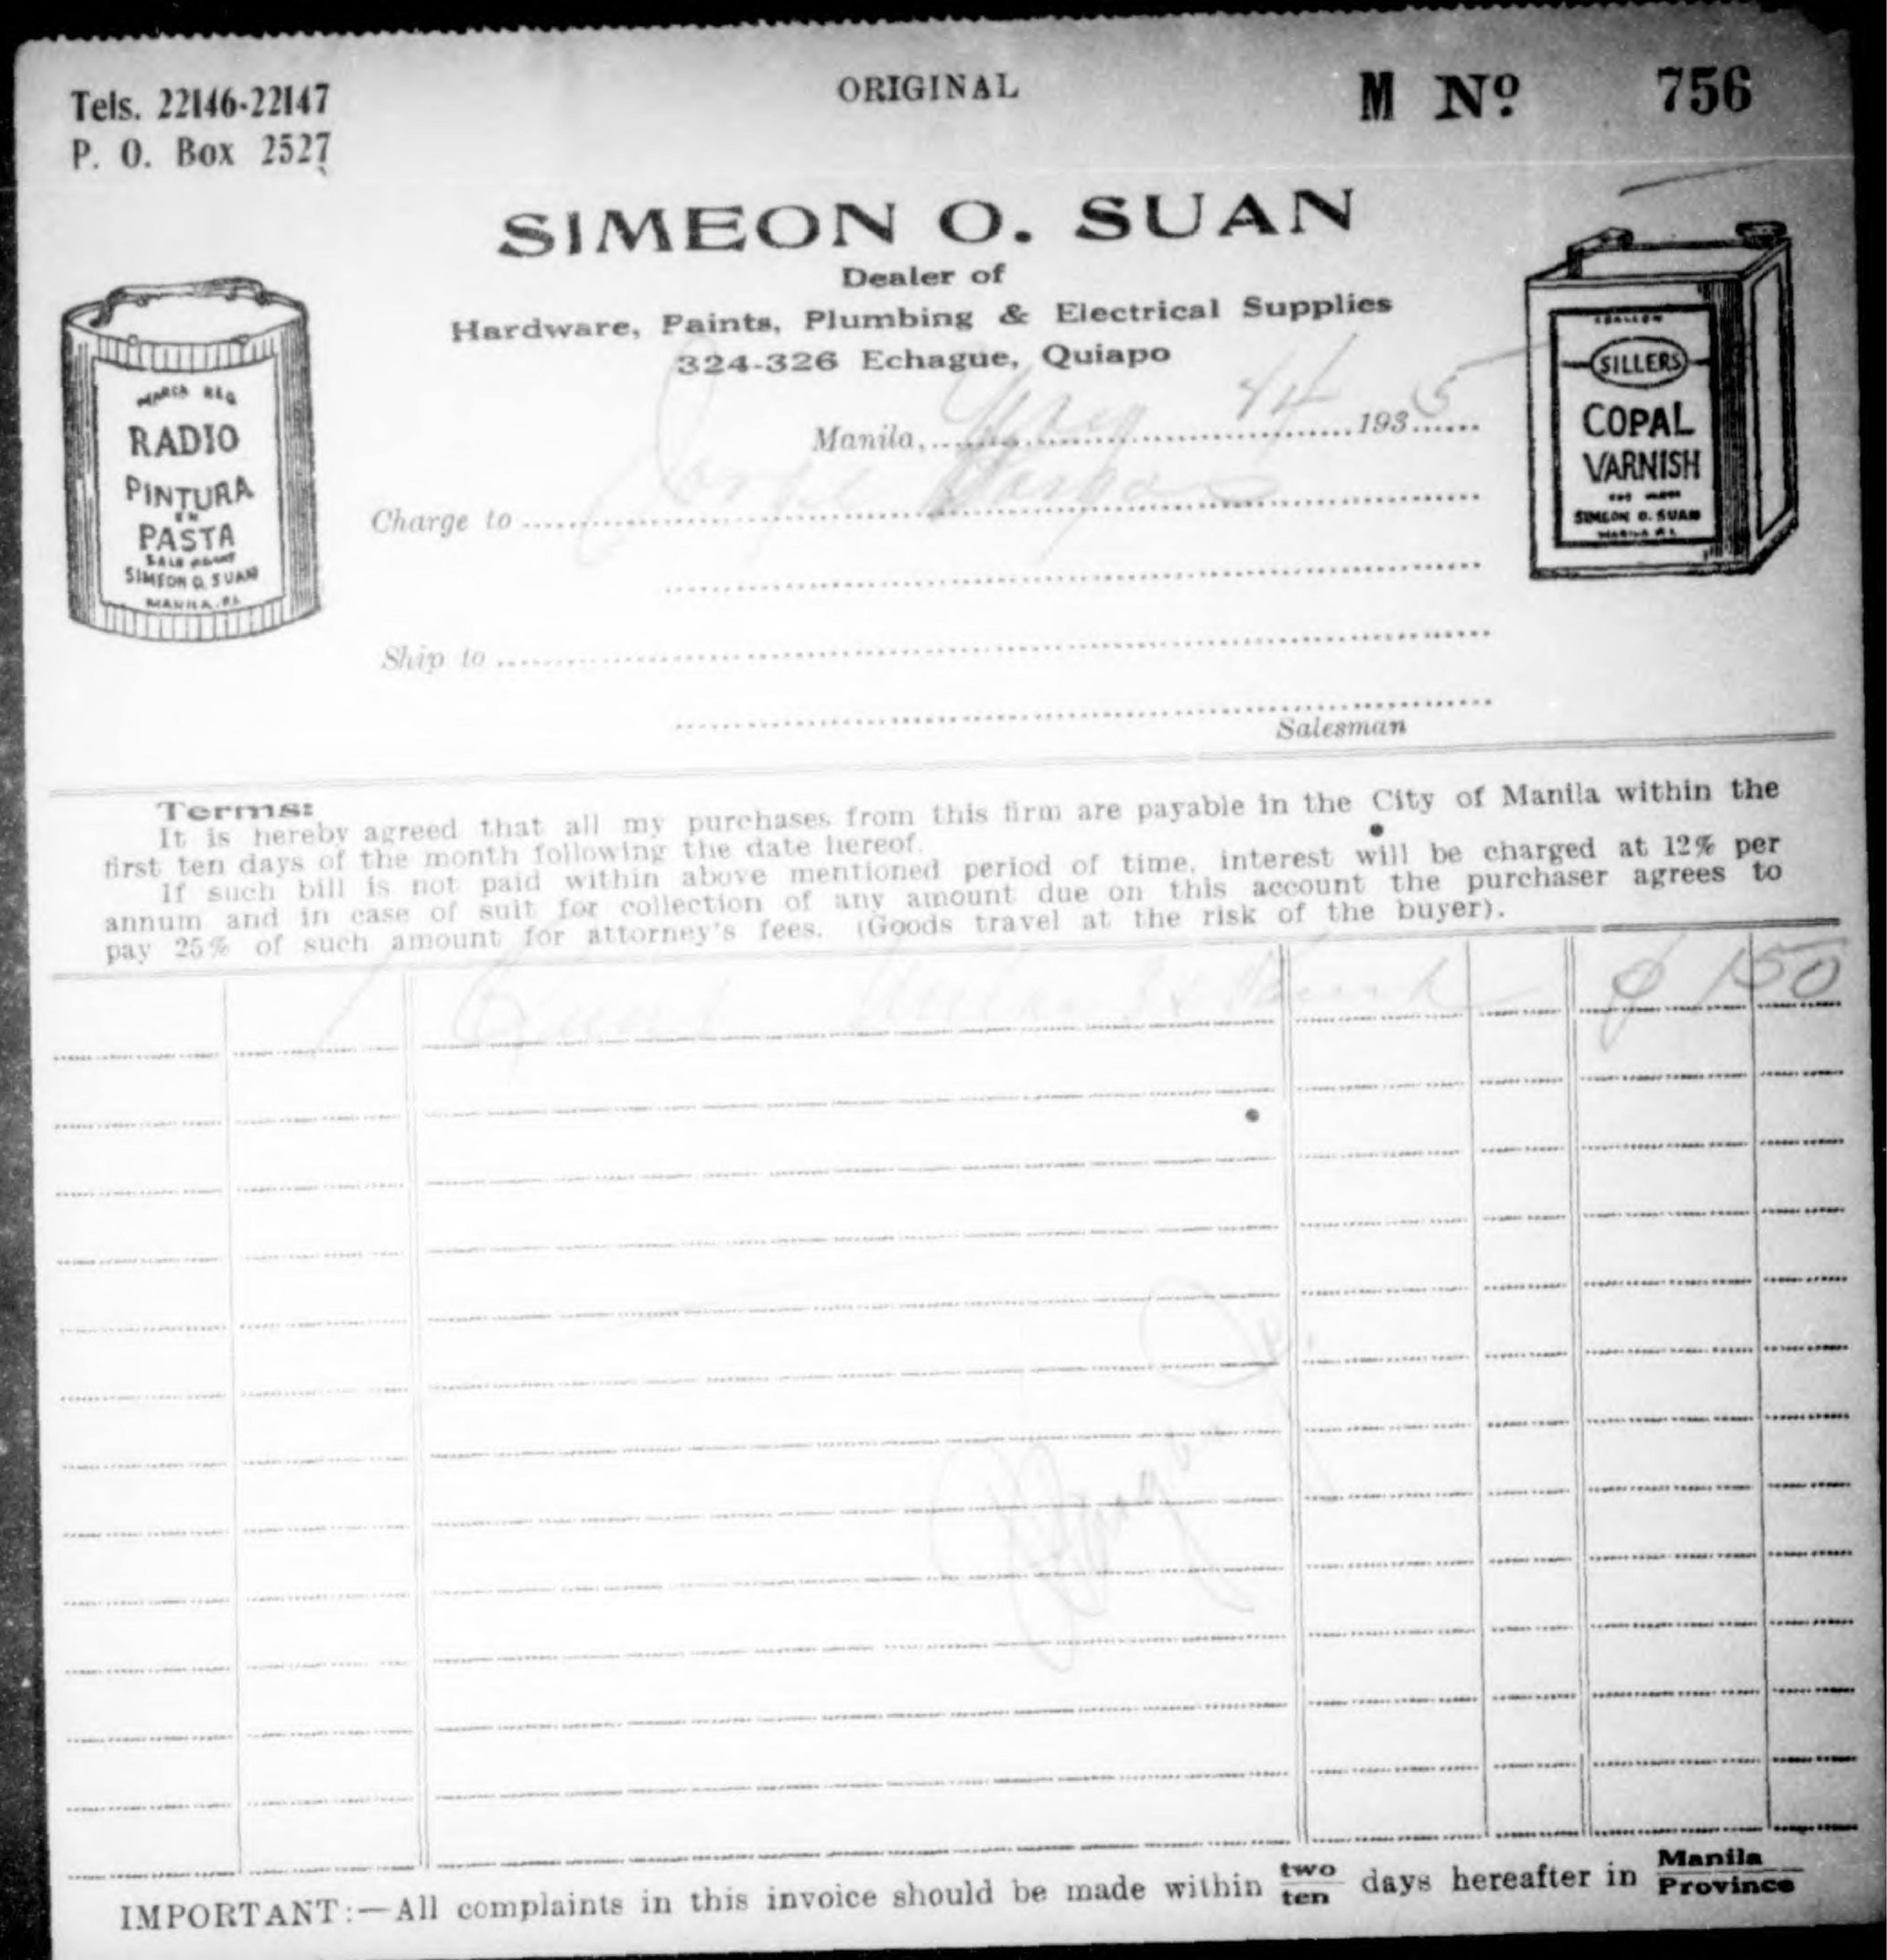 Tels. 22146-22147
P. O. Box 2527
ORIGINAL
M Nº 756
SIMEON O. SUAN
Dealer of
Hardware, Paints, Plumbing & Electrical Supplies
324-326 Echague, Quiapo
MARCA REG
RADIO
PINTURA
EN
PASTA
SIMEON O. SUAN
MANILA, P.I.
SILLERS
COPAL
VARNISH
SIMEON O. SUAN
MANILA P.I.
Manila, 14 1935
Charge to Jorge Vargas
Ship to
Salesman
Terms:
It is hereby agreed that all my purchases from this firm are payable in the City of Manila within the
first ten days of the month following the date hereof.
If such bill is not paid within above mentioned period of time, interest will be charged at 12% per
annum and in case of suit for collection of any amount due on this account the purchaser agrees to
pay 25% of such amount for attorney's fees. (Goods travel at the risk of the buyer).
1 150
IMPORTANT:—All complaints in this invoice should be made within two/ten days hereafter in Manila/Province